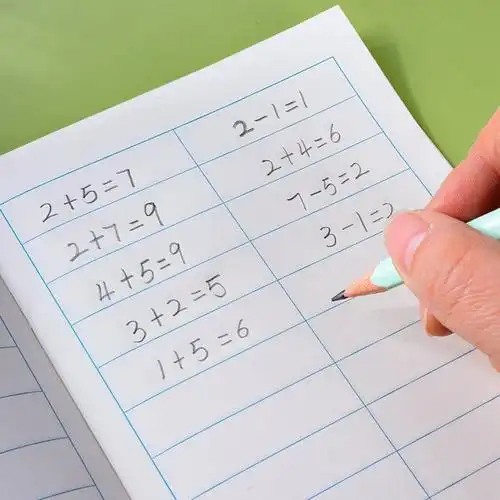 2+5=7
2+7=9
4+5=9
3+2=5
1+5=6
2-1=1
2+4=6
7-5=2
3-1=2